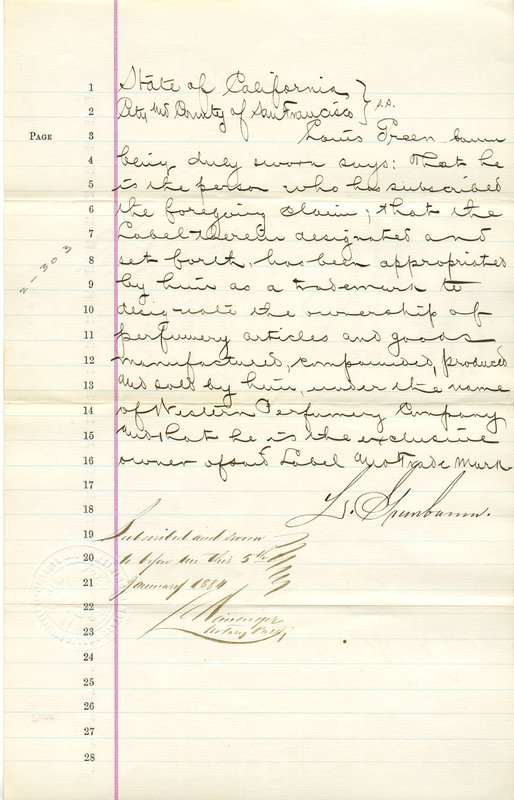 1 State of California, }
2 City and County of San Francisco } S.S.
PAGE 3 Louis Green-baum
4 being duly sworn says: That he
5 is the person who has subscribed
6 the foregoing claim; that the
7 Label therein designated and
8 set forth, has been appropriated
2-303
9 by him as a trademark to
10 designate the ownership of
11 perfumery articles and goods
12 manufactured, compounded, produced
13 and sold by him, under the name
14 of Western Perfumery Company
15 and that he is the exclusive
16 owner of said Label and Trade Mark
17
18 Ls. Greenbaum.
19 Subscribed and sworn
20 to before me this 5th
21 January 1884
22
23 Notary Public
24
25
26
27
28